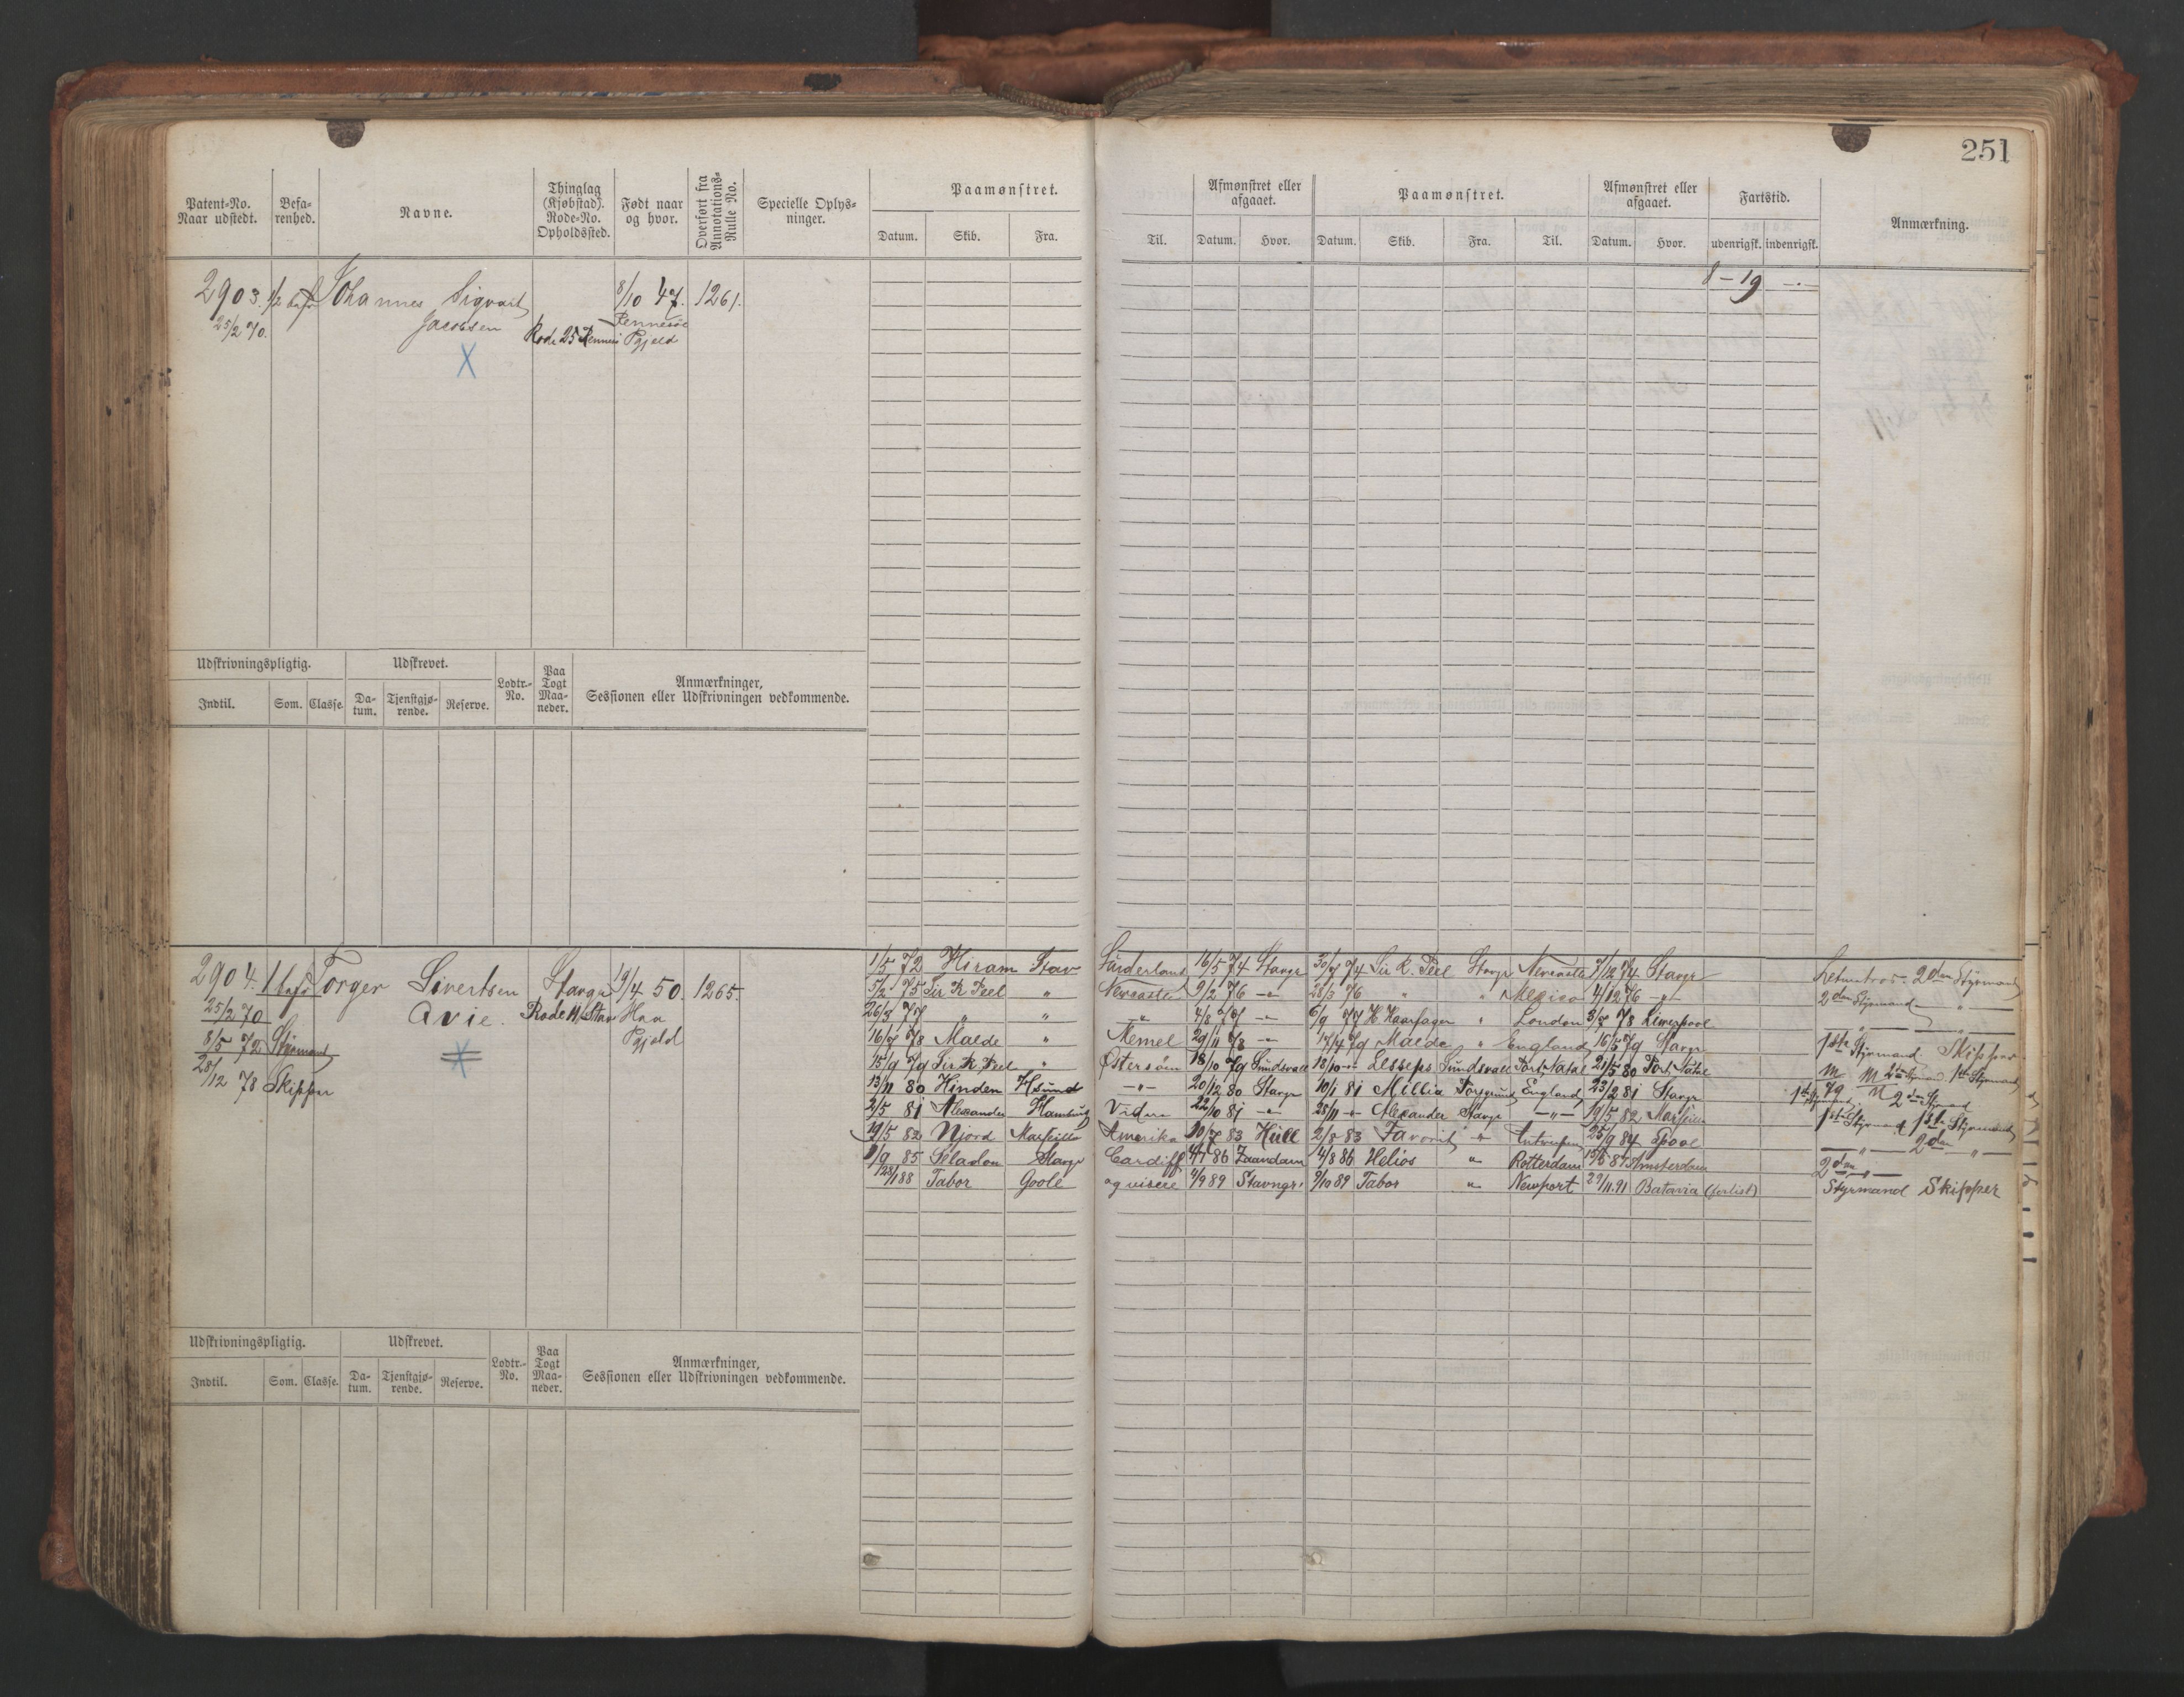 251
Patent-No. Naar udstedt. Befarenhed. Navne. Thinglag (Kjøbstad). Rode-No. Opholdssted. Født naar og hvor. Overført fra Annotations-Rulle No. Specielle Oplysninger. Paamønstret. Datum. Skib. Fra.
Til. Afmønstret eller afgaaet. Datum. Hvor. Paamønstret. Datum. Skib. Fra. Til. Afmønstret eller afgaaet. Datum. Hvor. Fartstid. udenrigsk. indenrigsk. Anmærkning.
2903. 1/2 bef Johannes Sigvart 8/10 47. 1261. 8-19
25/2 70. Jacobsen Rennesøe
Rode 25 Pgjeld
X
Udskrivningspligtig. Udskrevet. Lodtr.-No. Paa Togt Maaneder. Anmærkninger, Sessionen eller Udskrivningen vedkommende.
Indtil. Som. Classe. Datum. Tjenstgjørende. Reserve.
2904. 1 bef Torger Sivertsen Stavgr 19/4 50. 1265.
25/2 70 Avie. Rode 11 Stav Haa
8/5 72 Styrmand Pgjeld
28/12 78 Skipper
1/5 72 Hiram Stav Sunderland 16/5 74 Stavgr 30/7 74 Sir R. Peel Stavgr Newcastle 7/12 74 Stavgr 2den Styrmand
5/2 75 Sir R Peel " Newcastle 9/2 76 -"- 28/3 76 " " Mexico 4/12 76 -"- 2den Styrmand "
26/3 77 " " -"- 4/8 77 -"- 6/9 77 H Haarfager " London 3/5 78 Liverpool " "
16/7 78 Malde " Memel 29/11 78 -"- 17/4 79 Malde " England 16/5 79 Stavgr 1ste Styrmand. Skipper
15/9 79 Sir R Peel " Østersøen 18/10 79 Sundsvall 18/10 -"- Lesseps Sundsvall Port Natal 21/5 80 Port Natal
13/11 80 Hinden Hsund -"- 20/12 80 Stavgr 10/1 81 Millia Porsgrund England 23/2 81 Stavgr
2/5 81 Alexander Hamburg Videre 22/10 81 -"- 28/11 -"- Alexander Stavgr -"- 19/5 82 Marseille 1ste Styrmand 1ste Styrmand
19/5 82 Njord Marseille Amerika 10/7 83 Hull 2/8 83 Favorit " Antwerpen 25/9 84 Poole " 2den "
9/9 85 Seladon Stavgr Cardiff 4/7 86 Zaandam 4/8 86 Helios " Rotterdam 15/5 87 Amsterdam 2den "
28/1 88 Tabor Goole og videre 4/9 89 Stavngr. 9/10 89 Tabor " Newport 29/11.91 Batavia (forlist) Styrmand Skipper
Udskrivningspligtig. Udskrevet. Lodtr.-No. Paa Togt Maaneder. Anmærkninger, Sessionen eller Udskrivningen vedkommende.
Indtil. Som. Classe. Datum. Tjenstgjørende. Reserve.